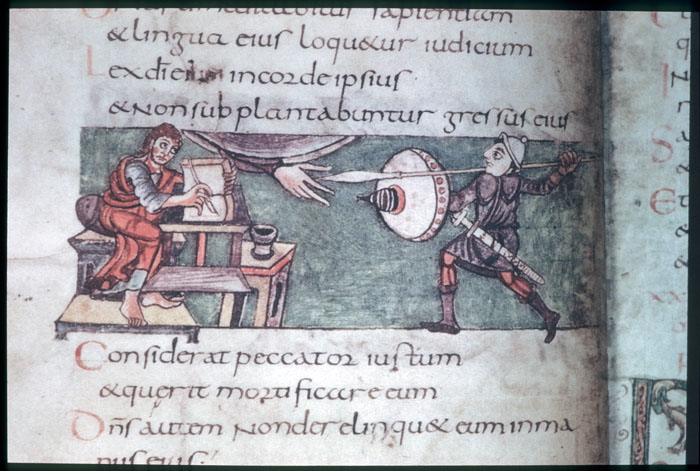 sapientiam
& lingua eius loqu&ur iudicium
Lex in corde ipsius·
& non subplantabuntur gressus eius
Considerat peccator iustum
& querit mortificare eum
Dn̄s autem non derelinqu& eum in ma
nus eius: